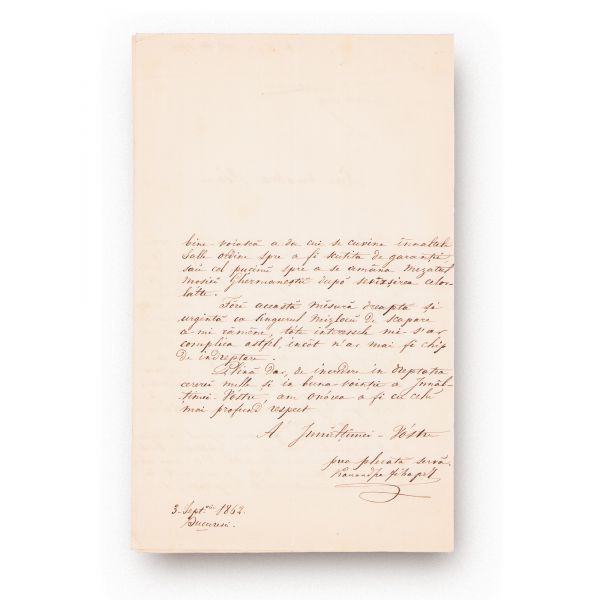 bine-voiască a da cui se cuvine înnaltele
Salle ordine spre a fi scutita de garanție
sau cel pucinŭ spre a se amâna Mezatul
Mosieĭ Ghermaneștiĭ după sevêrșirea celor-
lalte.
Fără această măsură dreaptă și
urgintă ca singurul mizlocŭ de scapare
a-mi rămâne, tóte intressele mi s'ar
complica astfel, incôt n'ar mai fi chip
de indreptare.
Plină dar, de incredere in dreptatea
cererii melle și in buna-vointie a Innăl-
țimei-Vóstre, am onórea a fi cu celŭ
mai profund respect
A Innălțimei-Vóstre
prea plecata servă.
3. Sept. 1862.
Bucuresci.